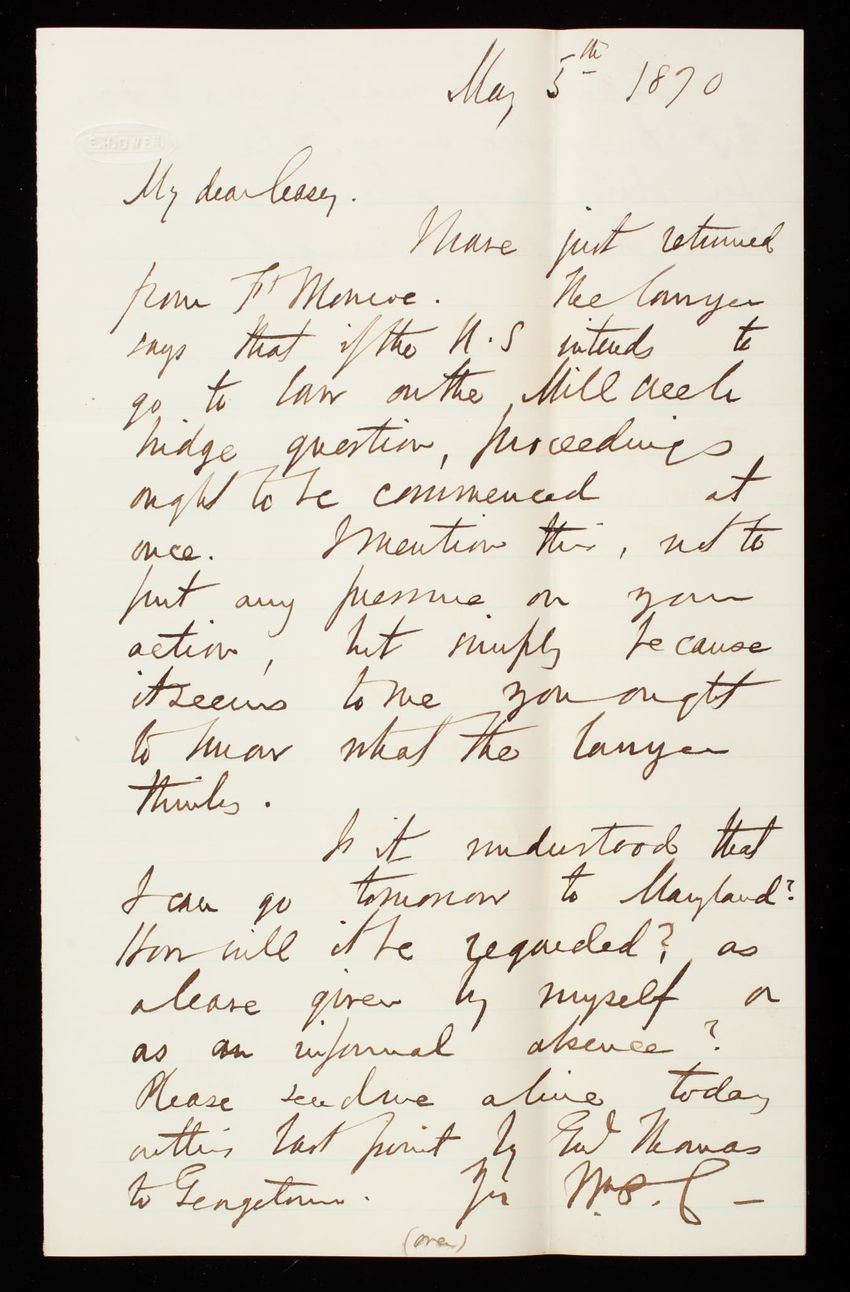 May 5th 1870
E.H.OWEN
My dear Casey.
I have just returned
from Ft Monroe. The lawyer
says that if the U.S intends to
go to law on the Mill Creek
bridge question, proceedings
ought to be commenced at
once. I mention this, not to
put any pressure on your
action, but simply because
it seems to me you ought
to know what the lawyer
thinks.
Is it understood that
I can go tomorrow to Maryland?
How will it be regarded? as
a leave given by myself or
as an informal absence?
Please send me a line today
on this last point by Genl Thomas
to Georgetown. Yrs Wm P. C—
(over)